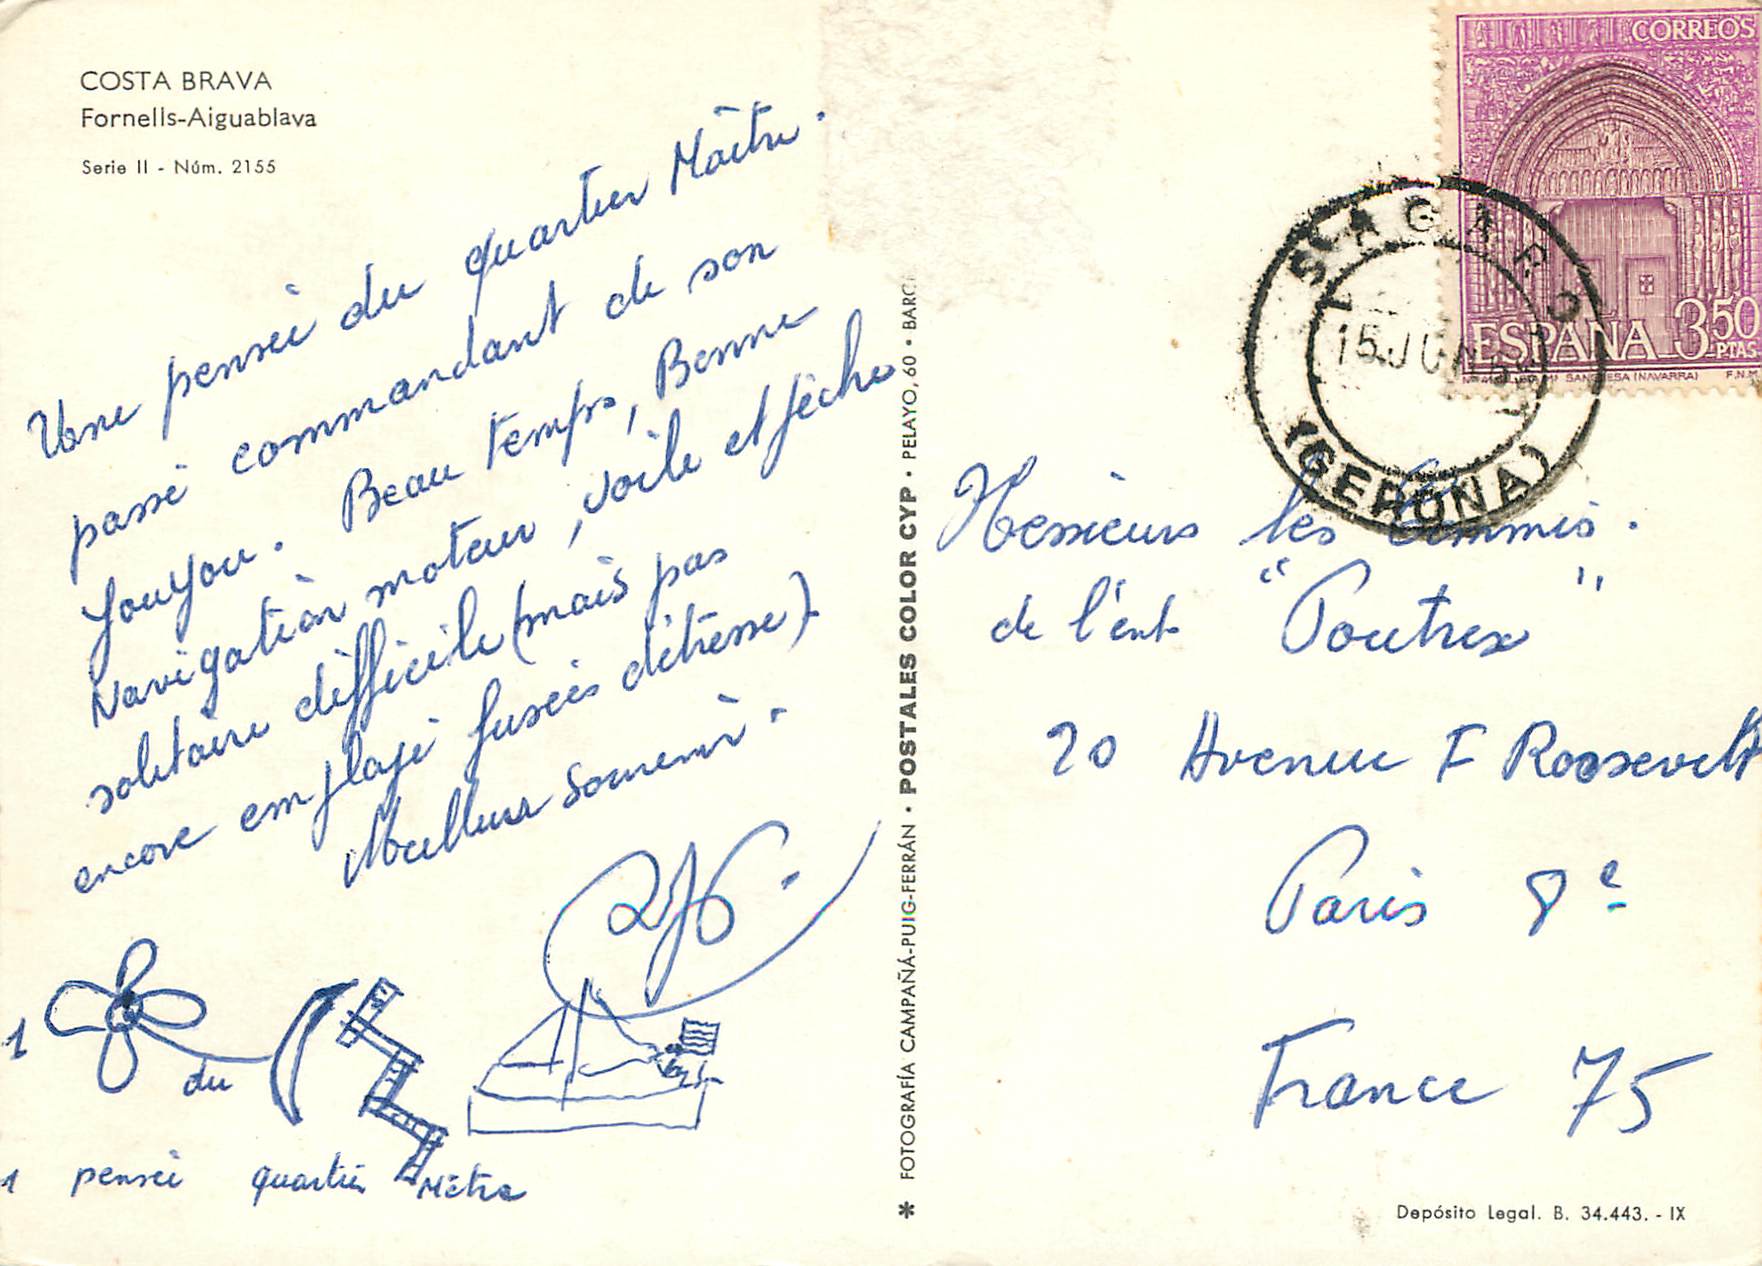 COSTA BRAVA
Fornells-Aiguablava
Serie II - Núm. 2155
Une pensée du quartier Maître.
passé commandant de son
youyou. Beau temps, Bonne
Navigation moteur, voile et pêche
solitaire difficile (mais pas
encore employé fusées détresse).
Meilleur Souvenir.
1 du
1 pensée quartier Mètre
* FOTOGRAFÍA CAMPAÑÁ-PUIG-FERRÁN • POSTALES COLOR CYP • PELAYO, 60 • BARC
CORREOS
ESPAÑA 3'50 PTAS
SANGÜESA (NAVARRA) F.N.M.
S'AGARO
15 JUN
(GERONA)
Messieurs les Commis.
de l'ent "Poutrex"
20 Avenue F Roosevelt
Paris 8e
France 75
Depósito Legal. B. 34.443. - IX